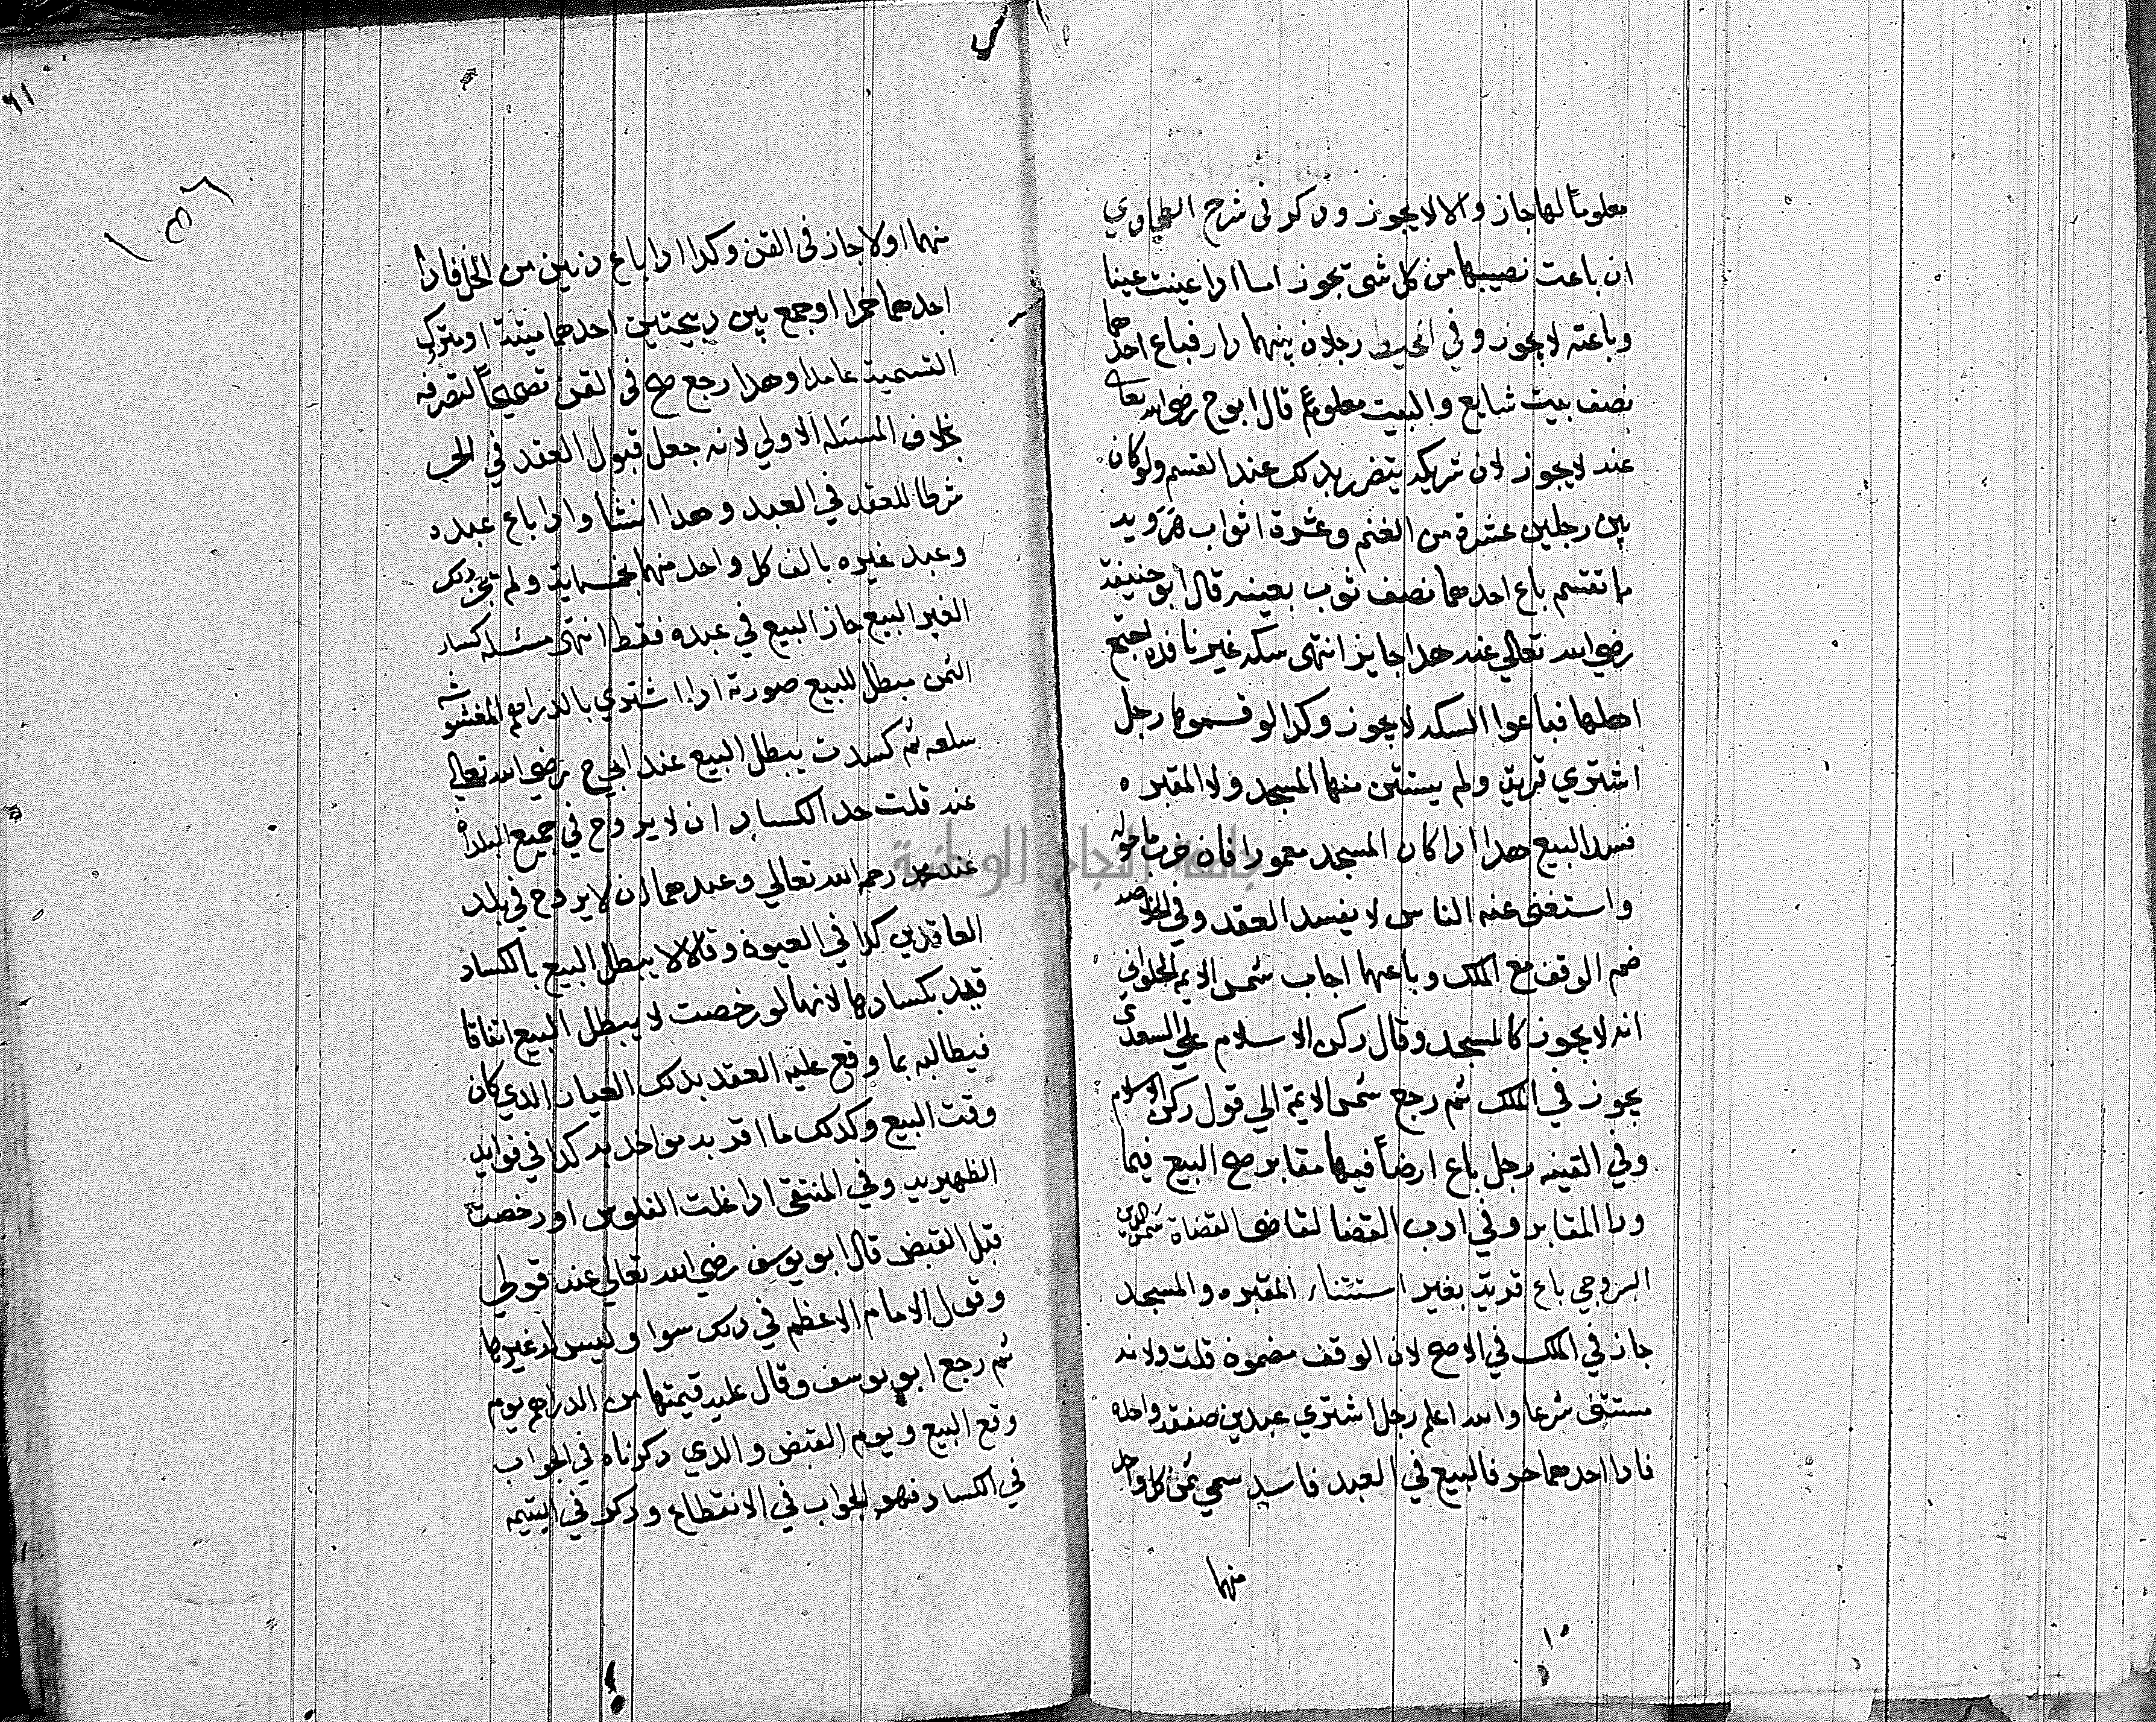 معلوما لها جاز والا لا يجوز وذكر في شرح الطحاوي
ان باعت نصيبها من كل شي تجوز اما اذا عينت عينا
وباعته لا يجوز وفي المحيط رجلان بينهما دار فباع احدهما
نصف بيت شايع والبيت معلوم قال ابو ح رضي الله تعالى
عنه لا يجوز لان شريكه يتضرر بذلك عند القسم ولو كان
بين رجلين عشرة من الغنم وعشرة اثواب هروية
ما تقتسم باع احدهما نصف ثوب بعينه قال ابو حنيفة
رضي الله تعالى عنه هذا جايز انتهى سكه غير نافذه اجتمع
اهلها فباعوا السكه لا يجوز وكذا لو قسموها رجل
اشتري قرية ولم يستثن منها المسجد ولا المقبره
فسد البيع هذا اذا كان المسجد معمورا فان خرب ما حوله
واستغنى عنه الناس لا يفسد العقد وفي
ضم الوقف مع الملك وباعهما اجاب شمس الايمة الحلواني
انه لا يجوز كالمسجد وقال ركن الاسلام علي السعدي
يجوز في الملك ثم رجع شمس الايمة الي قول ركن الاسلام
وفي القنيه رجل باع ارضاً فيها مقابر صح البيع فيما
ورا المقابر وفي ادب القضا لقاضى القضاة شمس الدين
السروجي باع قرية بغير استثناء المقبره والمسجد
جاز في الملك في الاصح لان الوقف مضمون قلت ولانه
مستثنى شرعا والله اعلم رجل اشتري عبدين صفقه واحده
فاذا احدهما حر فالبيع في العبد فاسد سمي ثمن كل واحد
منهما
منهما اولا جاز فى القن وكذا اذا باع دنين من الخل فاذا
احدهما خمرا او جمع بين ذبيحتين احدهما ميتة او متروك
التسمية عامدا وهذا رجع صح فى القن تصحيحاً لتصرفه
بخلاف المسئله الاولي لانه جعل قبول العقد في الحر
شرطا للعقد في العبد وهذا انشأ واذا باع عبده
وعبد غيره بالف كل واحد منهما بخمسماية ولم يجز ذلك
الغير البيع جاز البيع في عبده فقط انتهى مسئله كساد
الثمن مبطل للبيع صورته اذا اشتري بالدراهم المغشوشه
سلعه ثم كسدت يبطل البيع عند ابي ح رضي الله تعالي
عنه قلت حد الكساد ان لا يروج في جميع البلدان
عند محمد رحمه الله تعالي وعندهما ان لا يروج في بلد
العاقدين كذا في العيون وقالا لا يبطل البيع بالكساد
قيد بكسادها لانها لو رخصت لا يبطل البيع اتفاقا
فيطالبه بما وقع عليه العقد بذلك العيان الذي كان
وقت البيع وكذلك ما اقر به مواخذ به كذا في فوايد
الظهيريه وفي المنتقى اذا غلت الفلوس او رخصت
قبل القبض قال ابو يوسف رضي الله تعالي عنه قولي
وقول الامام الاعظم في ذلك سوا وليس له غيرها
ثم رجع ابو يوسف وقال عليه قيمتها من الدراهم يوم
وقع البيع ويوم القبض والذي ذكرناه في الجواب
في الكساد فهو الجواب في الانقطاع وذكر في اليتيمه
جامعة النجاح الوطنية